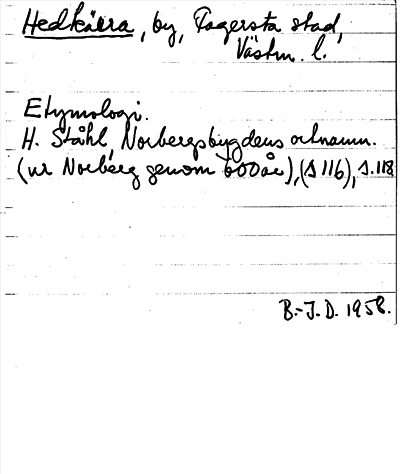 Hedkärra, by, Fagersta stad,
Västm. l.
Etymologi.
H. Ståhl, Norbergsbygdens ortnamn.
(ur Norberg genom 600 år), (s 116), s. 118
B.-J.D. 1958.